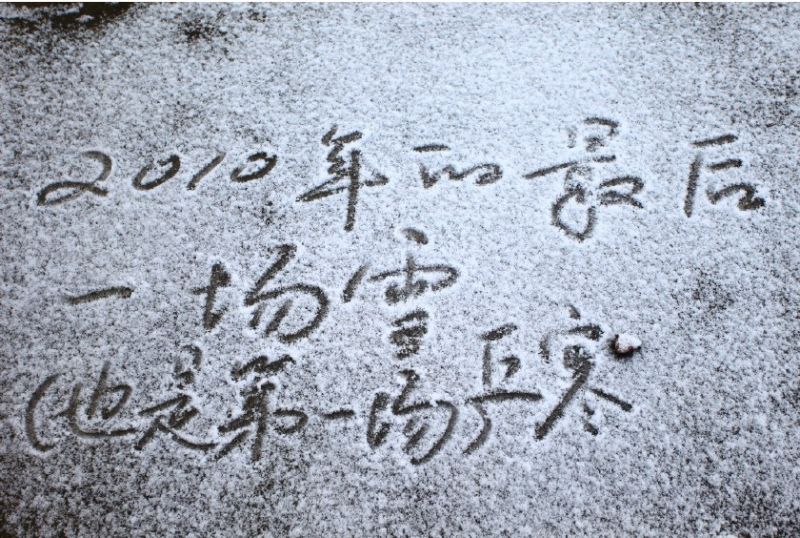 2010年的最后
一场雪
(也是第一场)丘寒